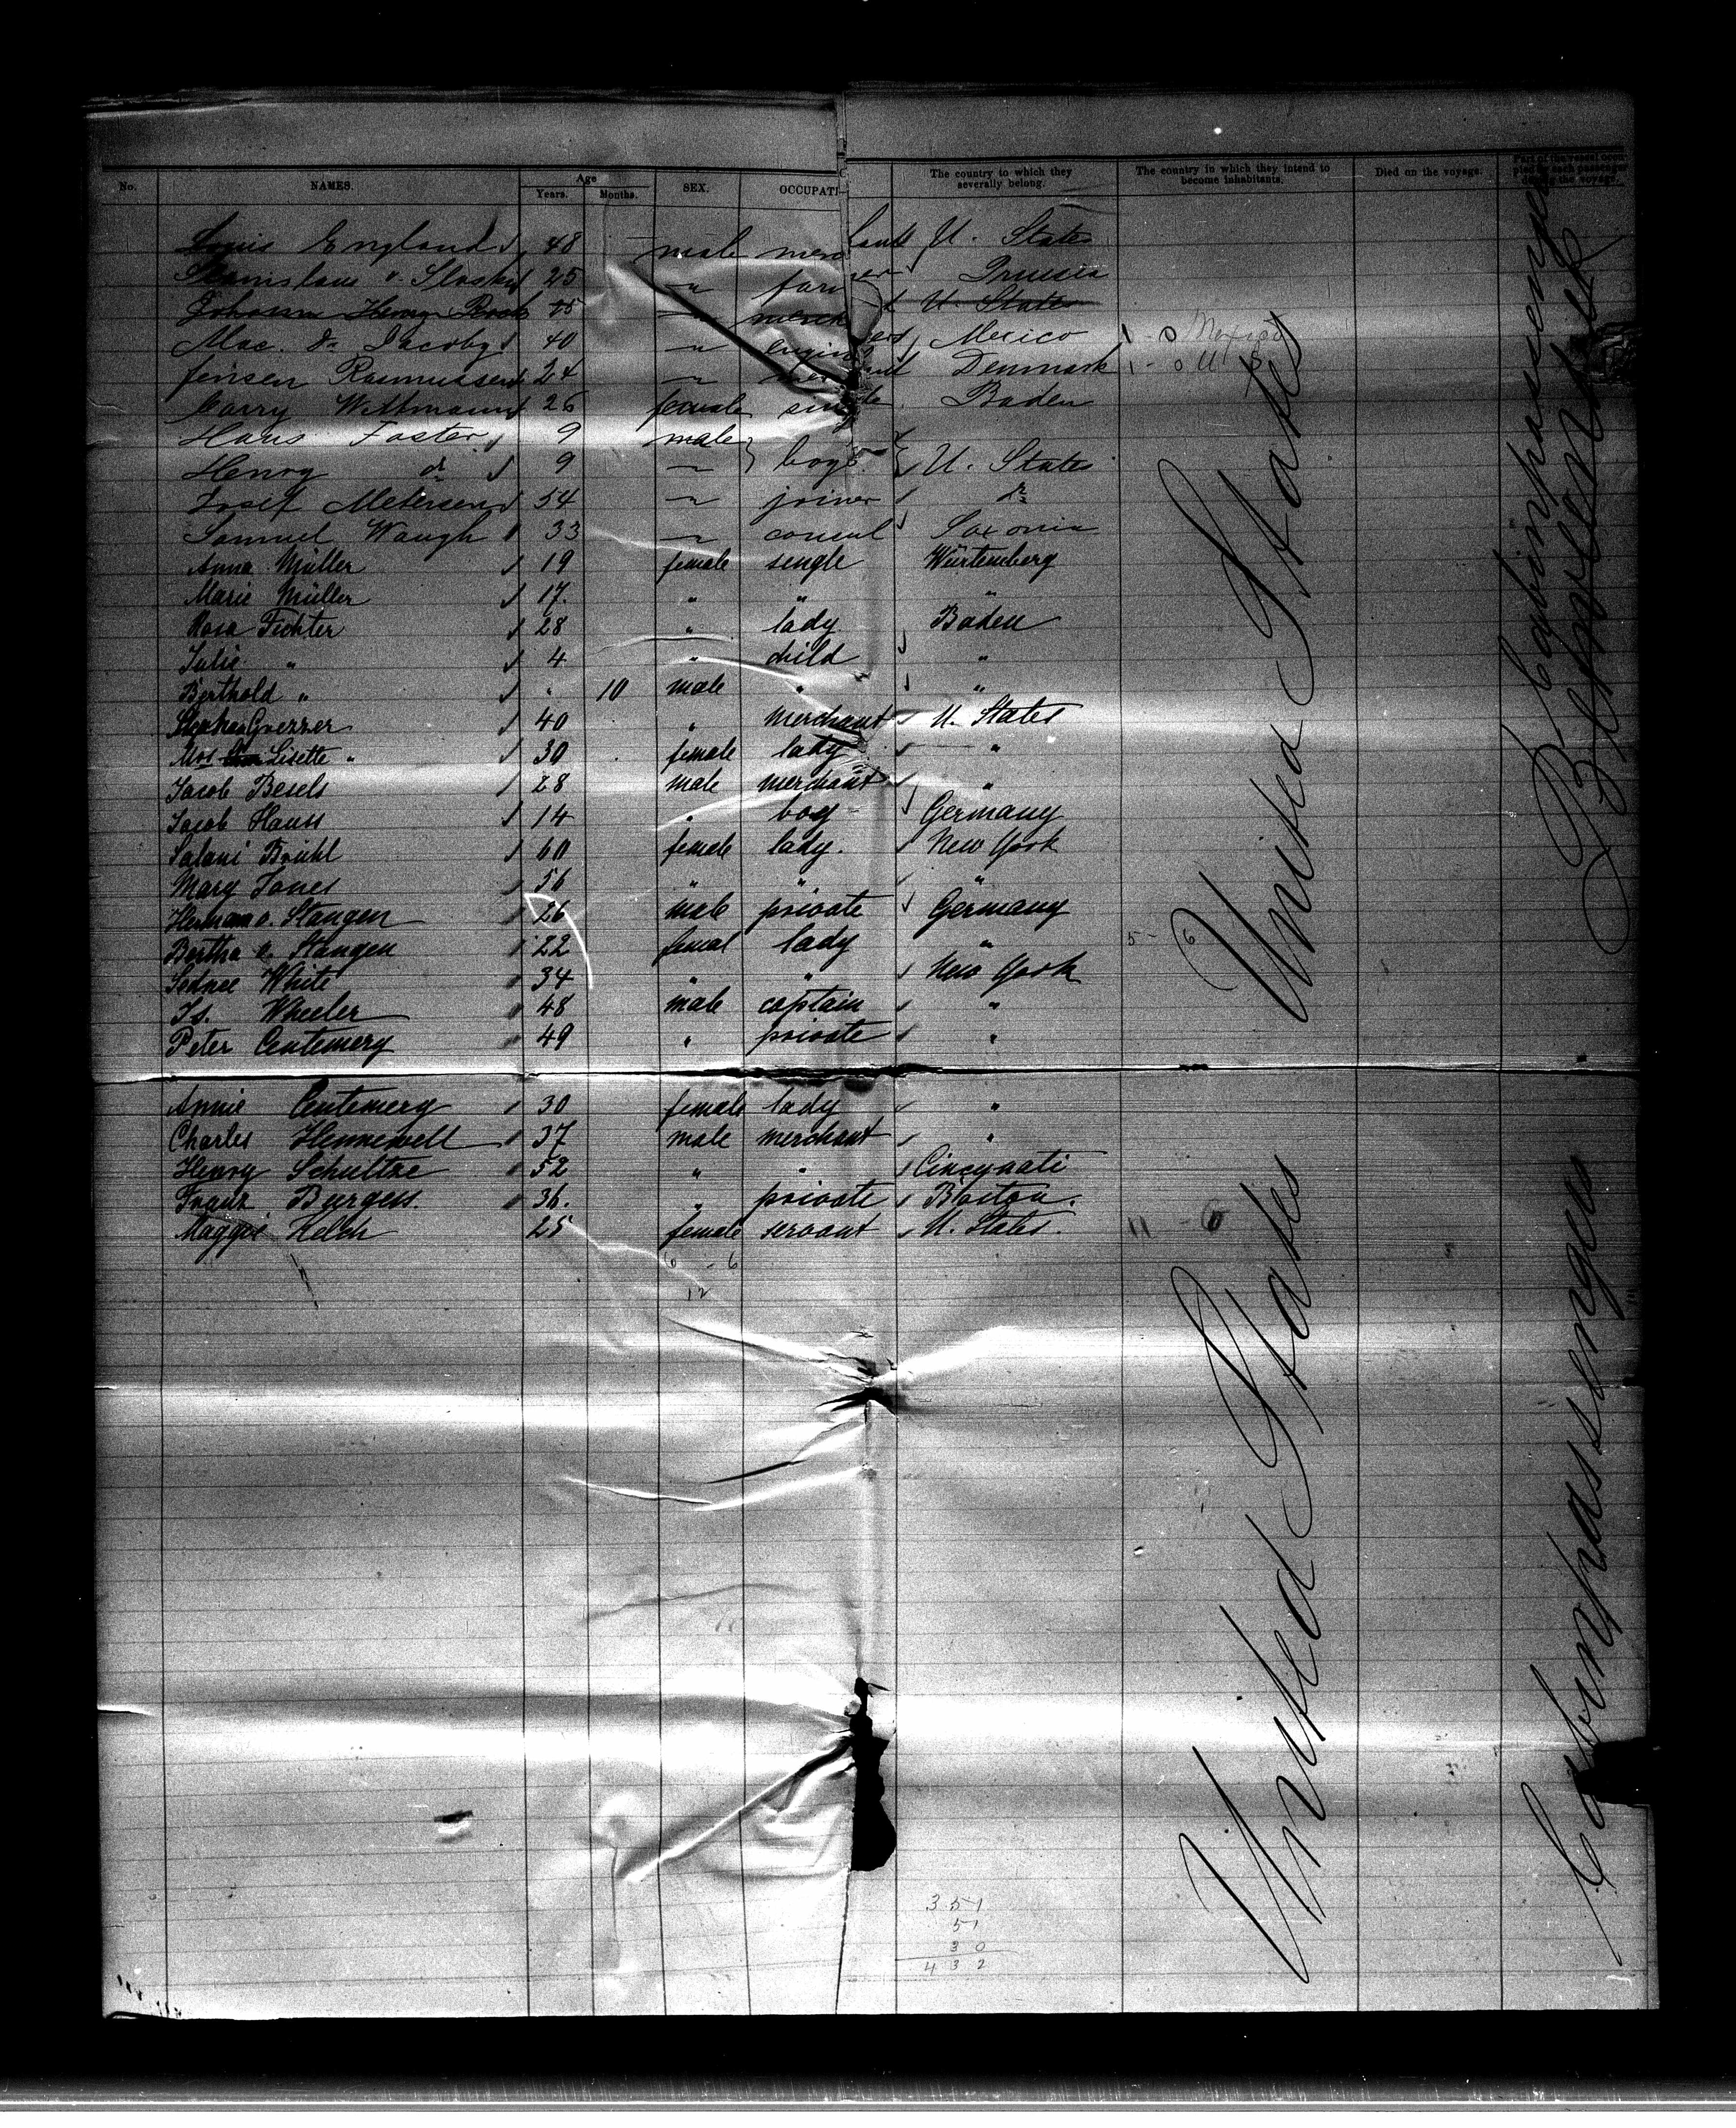 No. NAMES. Age Years. Months. SEX. OCCUPATI The country to which they severally belong. The country in which they intend to become inhabitants. Died on the voyage.
Louis England 48 male merchants U. States
Stanislaus v. 25 " farmer Prussia
Johann Henry " U. States
Mac. Jacoby 40 " Mexico 1 - 0 Mexico
Jensen Rasmussen 24 " Denmark 1 - 0 U S
Carry Wittmann 26 female single Baden
Hans Foster 9 male
Henry do 9 " boys. U. States
Josef Metersen 54 " joiner do
Samuel Waugh 33 " consul Saxonia
Anna Müller 19 female single Würtemberg
Marie Müller 17. " " "
Rosa Fichter 28 " lady Baden
Julie " 4 " child "
Berthold " " 10 male " "
Stephan 40 " merchant U. States
Mrs Lisette " 30 female lady "
Jacob Besels 28 male merchant "
Jacob Hauss 14 " boy Germany
Salani Brühl 60 female lady. New York
Mary Jones 56 " " "
Herman v. Stangen 26 male private Germany
Bertha v. Stangen 22 femal lady " 5 - 6
White 34 " " New York
Is. Wheeler 48 male captain "
Peter Centemery 49 " private "
Annie Centemery 30 female lady "
Charles Hennewell 37 male merchant "
Henry Schultze 52 " " Cincynati
Franz Burgess. 36. " private Boston.
Maggie Kelch 25 female servant U. States. 11 - 0
6 - 6
12
United States
United States
Cabinpassenger
Cabinpassengers
351
51
30
432